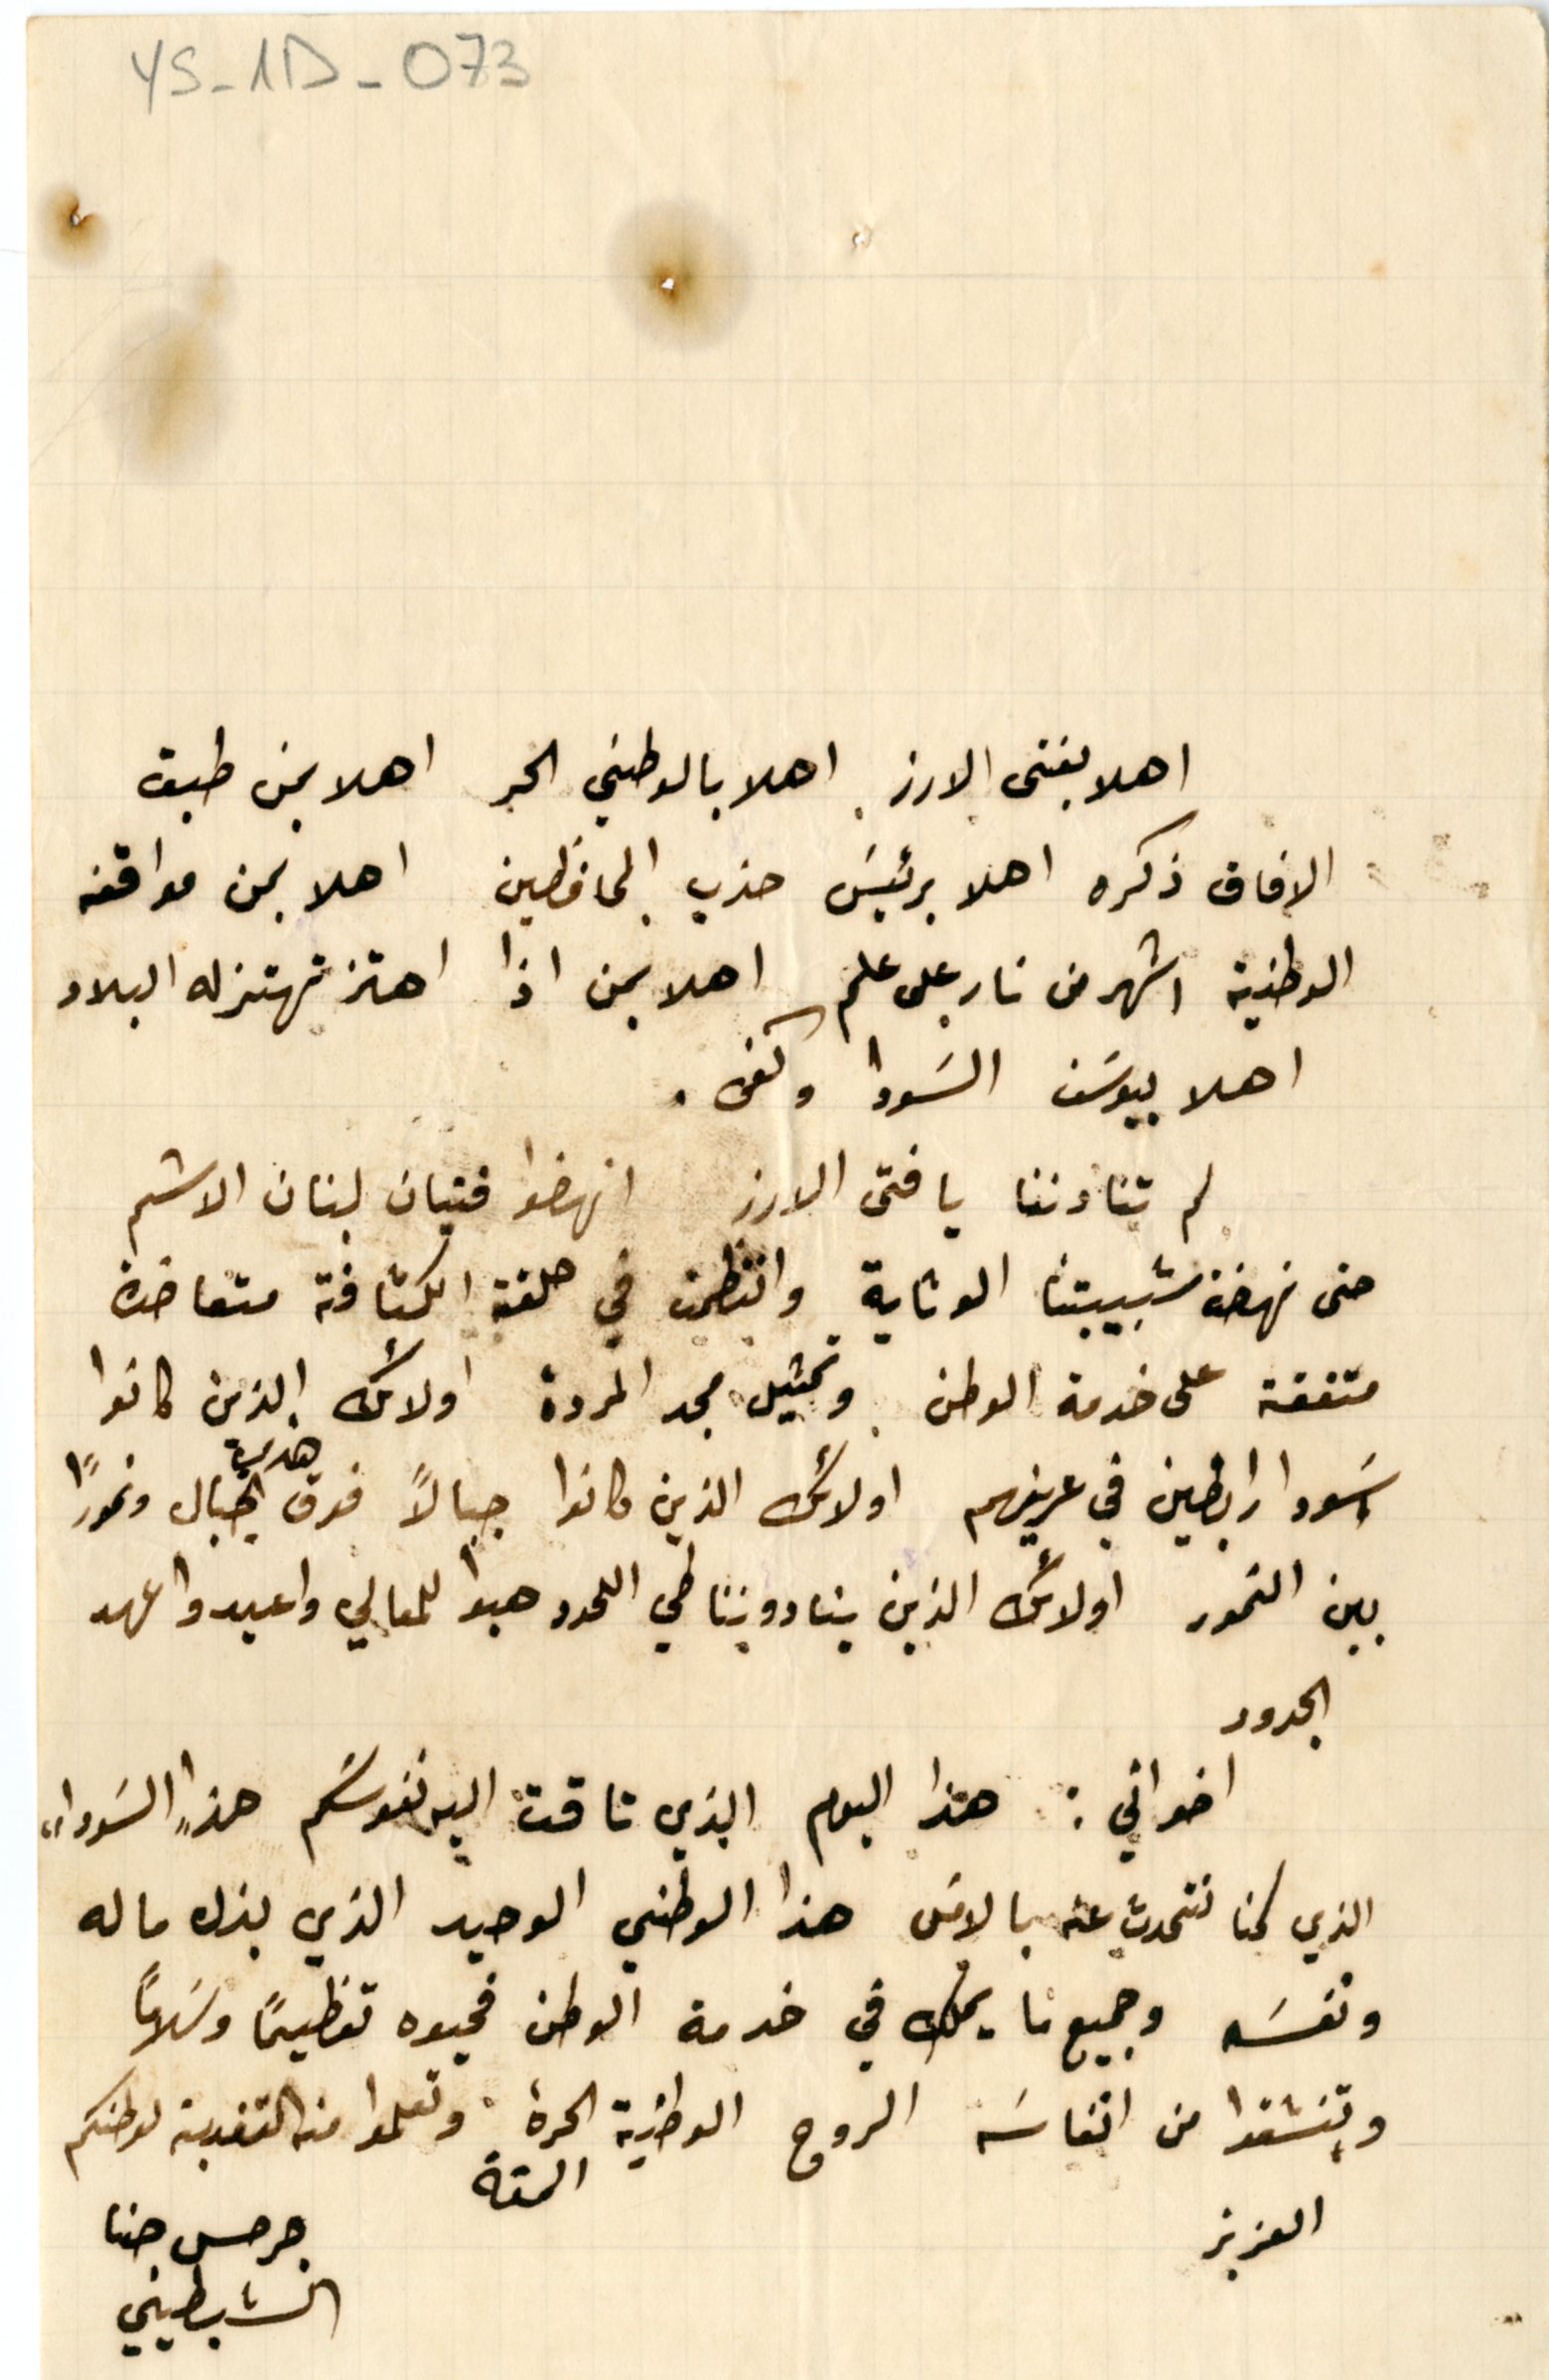 YS-1D-073
اهلا بفتى الارز اهلا بالوطني الحر اهلا بمن طبق
الافاق ذكره اهلا برئيس حزب المحافظين اهلا بمن مواقفه
الوطنية اشهر من نار على علم اهلا بمن اذا اهتز تهتز له البلاد
اهلا بيوسف السودا وكفى .
لم تنادننا يا فتى الارز انهضوا فتيان لبنان الاشم
حتى نهضة شبيبتنا الوثابة وانتظمت في حلقة الكشافة متعاضدة
متفقة على خدمة الوطن وتمثيل مجد المردة اولائك الذين كانوا
اسودا رابطين في عرينهم اولائك الذين كانوا جبالاً فوق هذه الجبال ونمورًا
بين النمور اولائك الذين ينادوننا طي اللحود هبوا للمعالي واعيدوا عهد
الجدود
اخواني : هذا اليوم الذي تاقت اليه نفوسكم هذا "السودا"
الذي كنا نتحدث عنه بالامس هذا الوطني الوحيد الذي بذل ماله
ونفسه وجميع ما يملك في خدمة الوطن فحيوه تعظيمًا وسلامًا
وتنشقوا من انفاسه الروح الوطنية الحرة وتعلموا منه التفدية لوطنكم
العزيز
جرجس حنا
الشبطيني